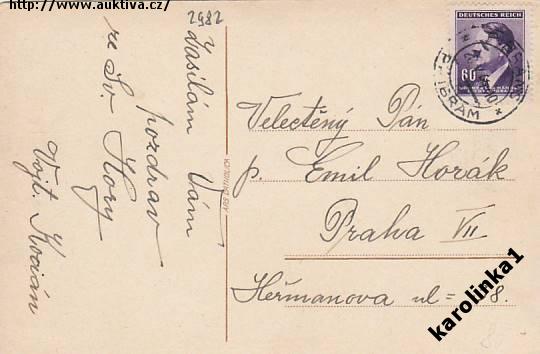 http://www.auktiva.cz/
2982
Zasílám Vám
pozdrav
ze Sv. Hory
Vojt. Kocián
DEUTSCHES REICH
60
PŘIBRAM
Velectěný Pán
p. Emil Horák
Praha VII
Heřmanova ul= 8.
karolinka1